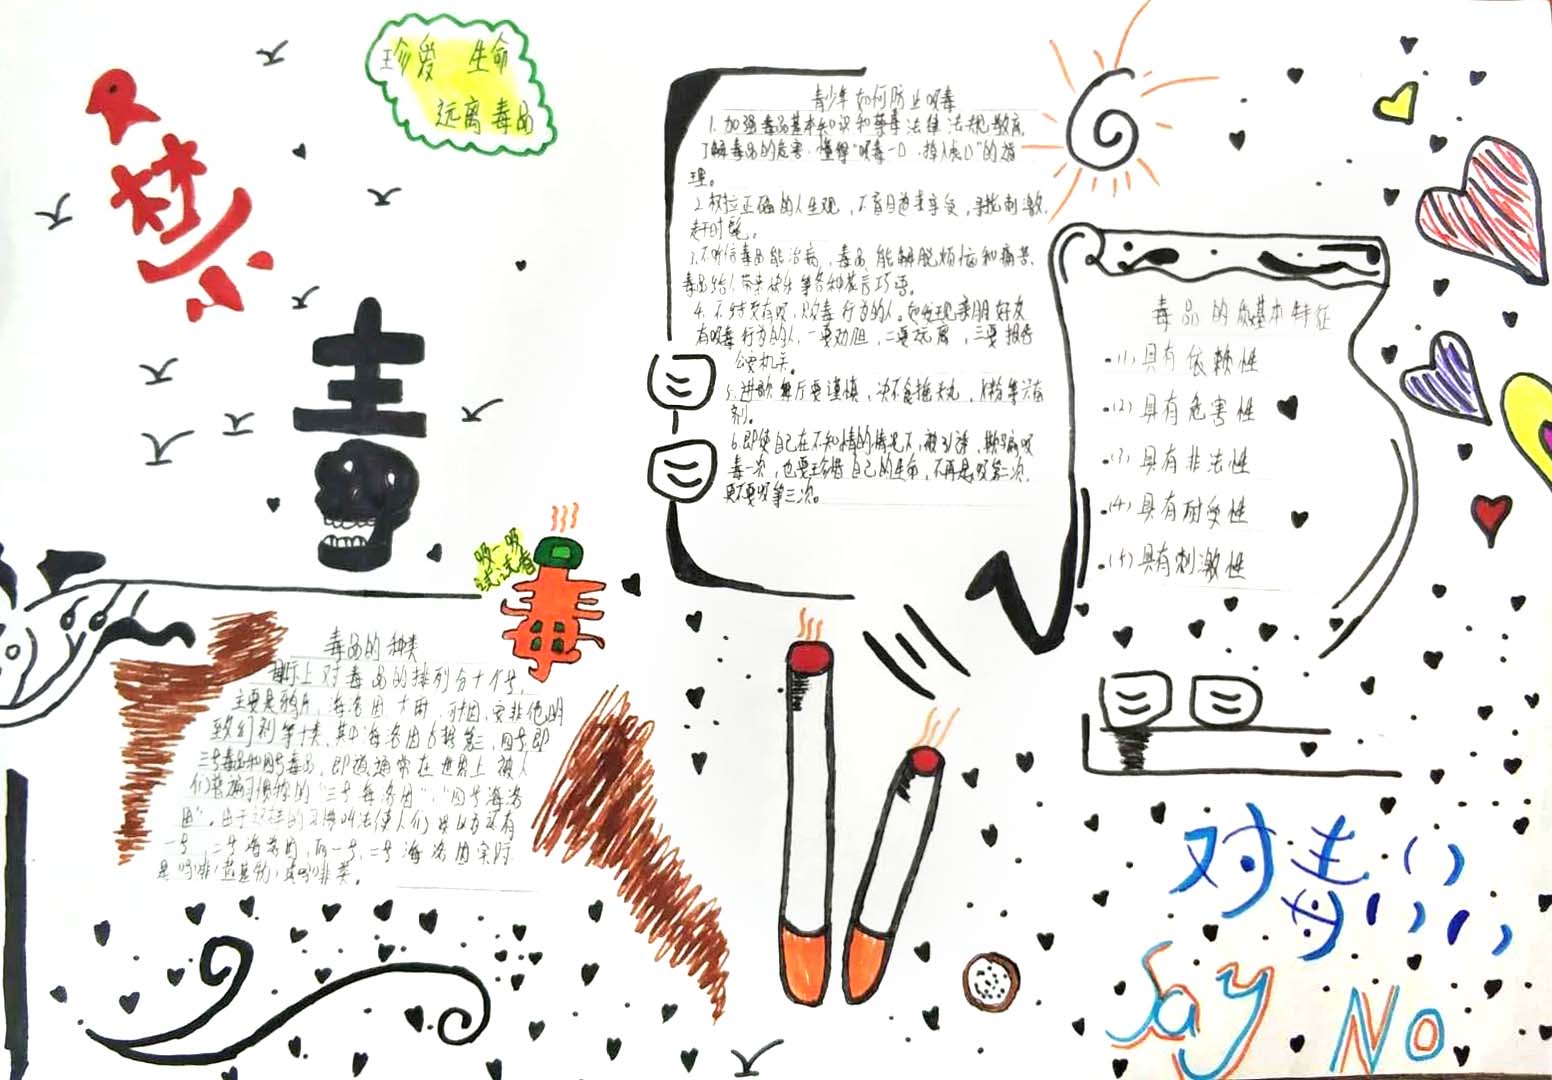 珍爱 生命
远离毒品
禁
毒
吸一吸
试试看
毒
青少年如何防止吸毒
1.加强毒品基本知识和禁毒法律法规教育,
了解毒品的危害,懂得“吸毒一口,掉入虎口”的道
理。
2.树立正确的人生观,不盲目追求享受,寻找刺激,
赶时髦。
3.不听信毒品能治病,毒品能解脱烦恼和痛苦,
毒品给人带来快乐等各种花言巧语。
4.不结交有吸、贩毒行为的人。如发现亲朋好友
有吸毒行为的人,一要劝阻,二要远离,三要报告
公安机关。
5.进歌舞厅要谨慎,决不食摇头丸,K粉等兴奋
剂。
6.即使自己在不知情的情况下,被引诱,欺骗吸
毒一次,也要珍惜自己的生命,不再吸第二次,
更不要吸第三次。
毒品的基本特征
(1)具有依赖性
(2)具有危害性
(3)具有非法性
(4)具有耐受性
(5)具有刺激性
毒品的种类
国际上对毒品的排列分十个号,
主要是鸦片,海洛因,大麻,可卡因,安非他明
致幻剂等十类,其中海洛因占据第三,四号,即
三号毒品和四号毒品,即被通常在世界上被人
们普遍习惯称的“三号海洛因”,“四号海洛
因”。由于这样的习惯叫法使人们误以为还有
一号,二号海洛因,而一号,二号海洛因实际
是吗啡盐基物,真吗啡类。
对毒
Say No